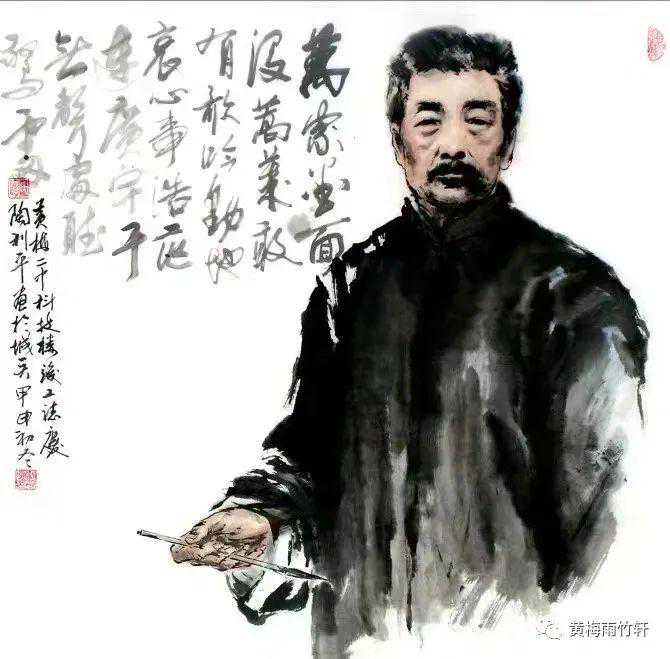 萬家墨面
没蒿萊敢
有歌吟動地
哀心事浩茫
連廣宇于
無聲處聽
驚雷
黄梅二中科技楼竣工誌慶
陶利平画於城关甲申初冬
黄梅雨竹轩